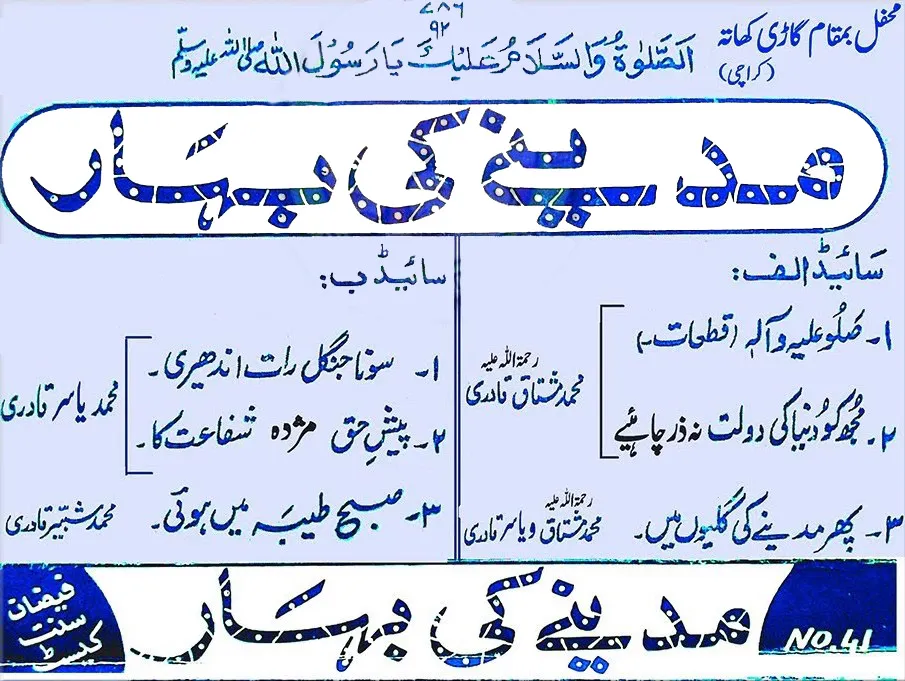 ۷۸۶
۹۲
محفل بمقام گاڑی کھاتہ
(کراچی)
اَلصَّلوٰۃُ وَالسَّلَامُ عَلَیْکَ یَا رَسُوْلَ اللہ صلی اللہ علیہ وسلم
مدینے کی بہار
سائیڈ الف:
۱۔ صَلُّو علیہ وآلہٖ (قطعات)
۲۔ مجھ کو دنیا کی دولت نہ زر چاہئیے
محمد مشتاق قادری رحمۃ اللہ علیہ
۳۔ پھر مدینے کی گلیوں میں۔
محمد مشتاق و یاسر قادری رحمۃ اللہ علیہ
سائیڈ ب:
۱۔ سونا جنگل رات اندھیری۔
۲۔ پیشِ حق مژدہ شفاعت کا۔
محمد یاسر قادری
۳۔ صبح طیبہ میں ہوئی۔
محمد شبیر قادری
فیضان
سنت
کیسٹ
مدینے کی بہار
NO.41